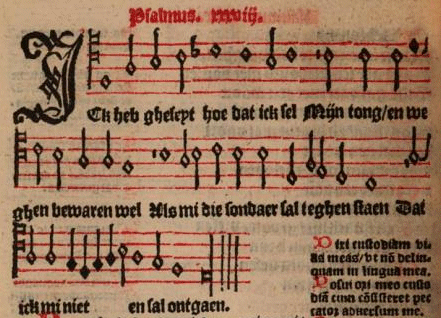 Psalmus. xxxviij.
ICk heb gheseyt hoe dat ick sel Mijn tong/en we
ghen bewaren wel Als mi die sondaer sal teghen staen Dat
ick mi niet en sal ontgaen.
Dixi custodiam vi-
as meas/ vt nō delin-
quam in lingua mea.
Posui ori meo custo
diā cum cōsisteret pec
cator aduersum me.